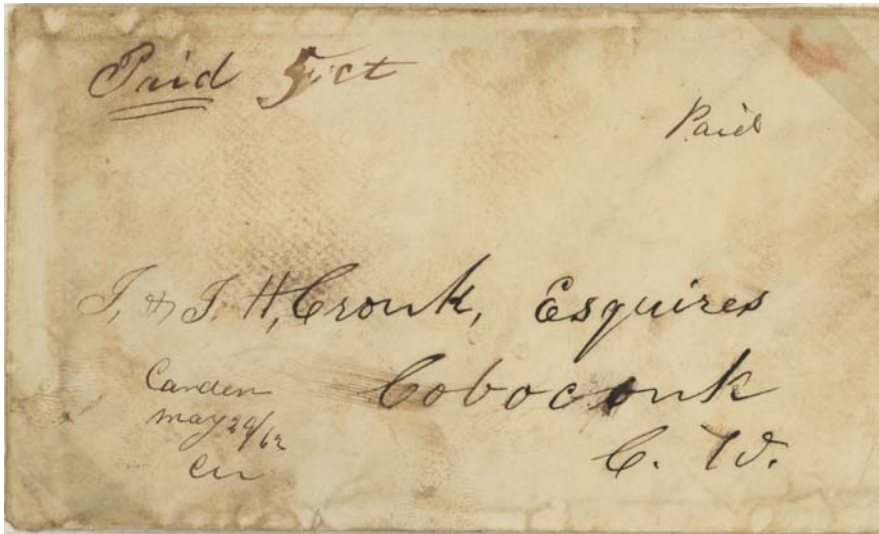 Paid 5 ct
Paid
J. & J. H, Cronk, Esquires
Coboconk
C. W.
Carden
May 29/62